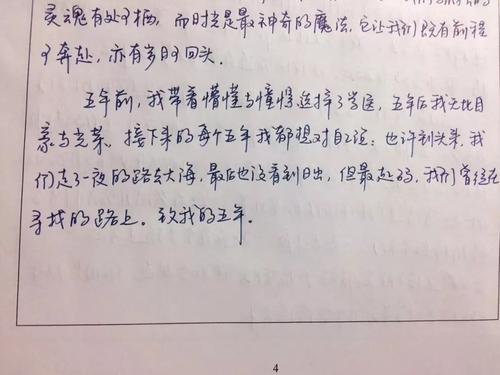 灵魂有处可栖，而时光是最神奇的魔法，它让我们既有前程
可奔赴，亦有岁月可回头。
五年前，我带着懵懂与憧憬选择了学医，五年后我无比自
豪与光荣。接下来的每个五年我都想对自己说：也许到头来，我
们走了一夜的路去大海，最后也没看到日出，但最起码，我们曾经在
寻找的路上。致我的五年。
4